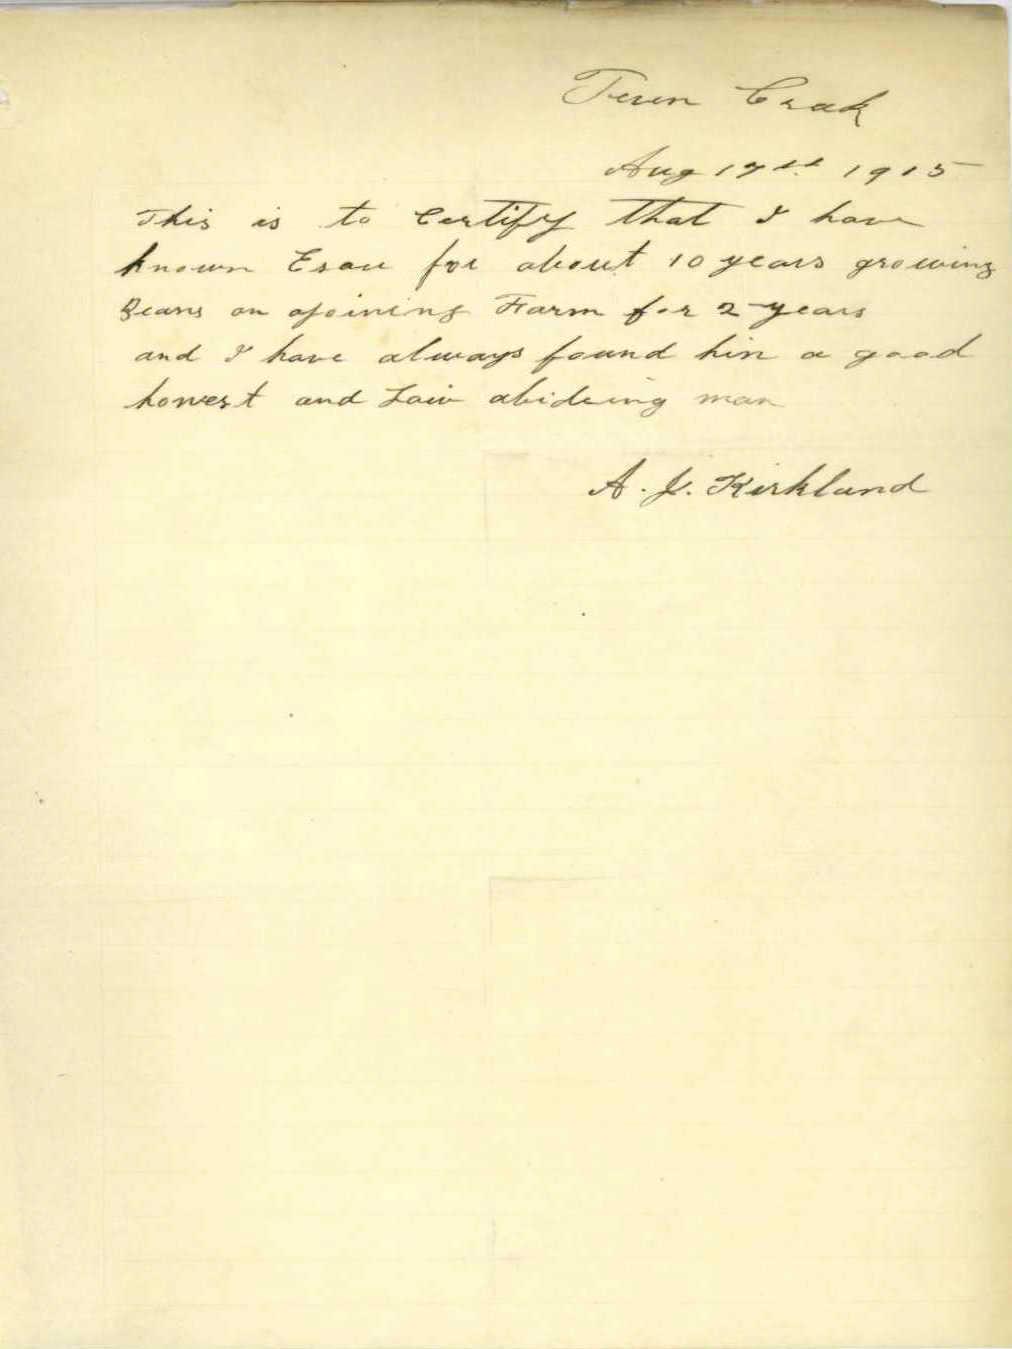 Fern Creek
Aug 17st 1915
This is to Certify that I have
known Esau for about 10 years growing
Beans on ajoining Farm for 2 years
and I have always found him a good
honest and Law abideing man
A. J. Kirkland